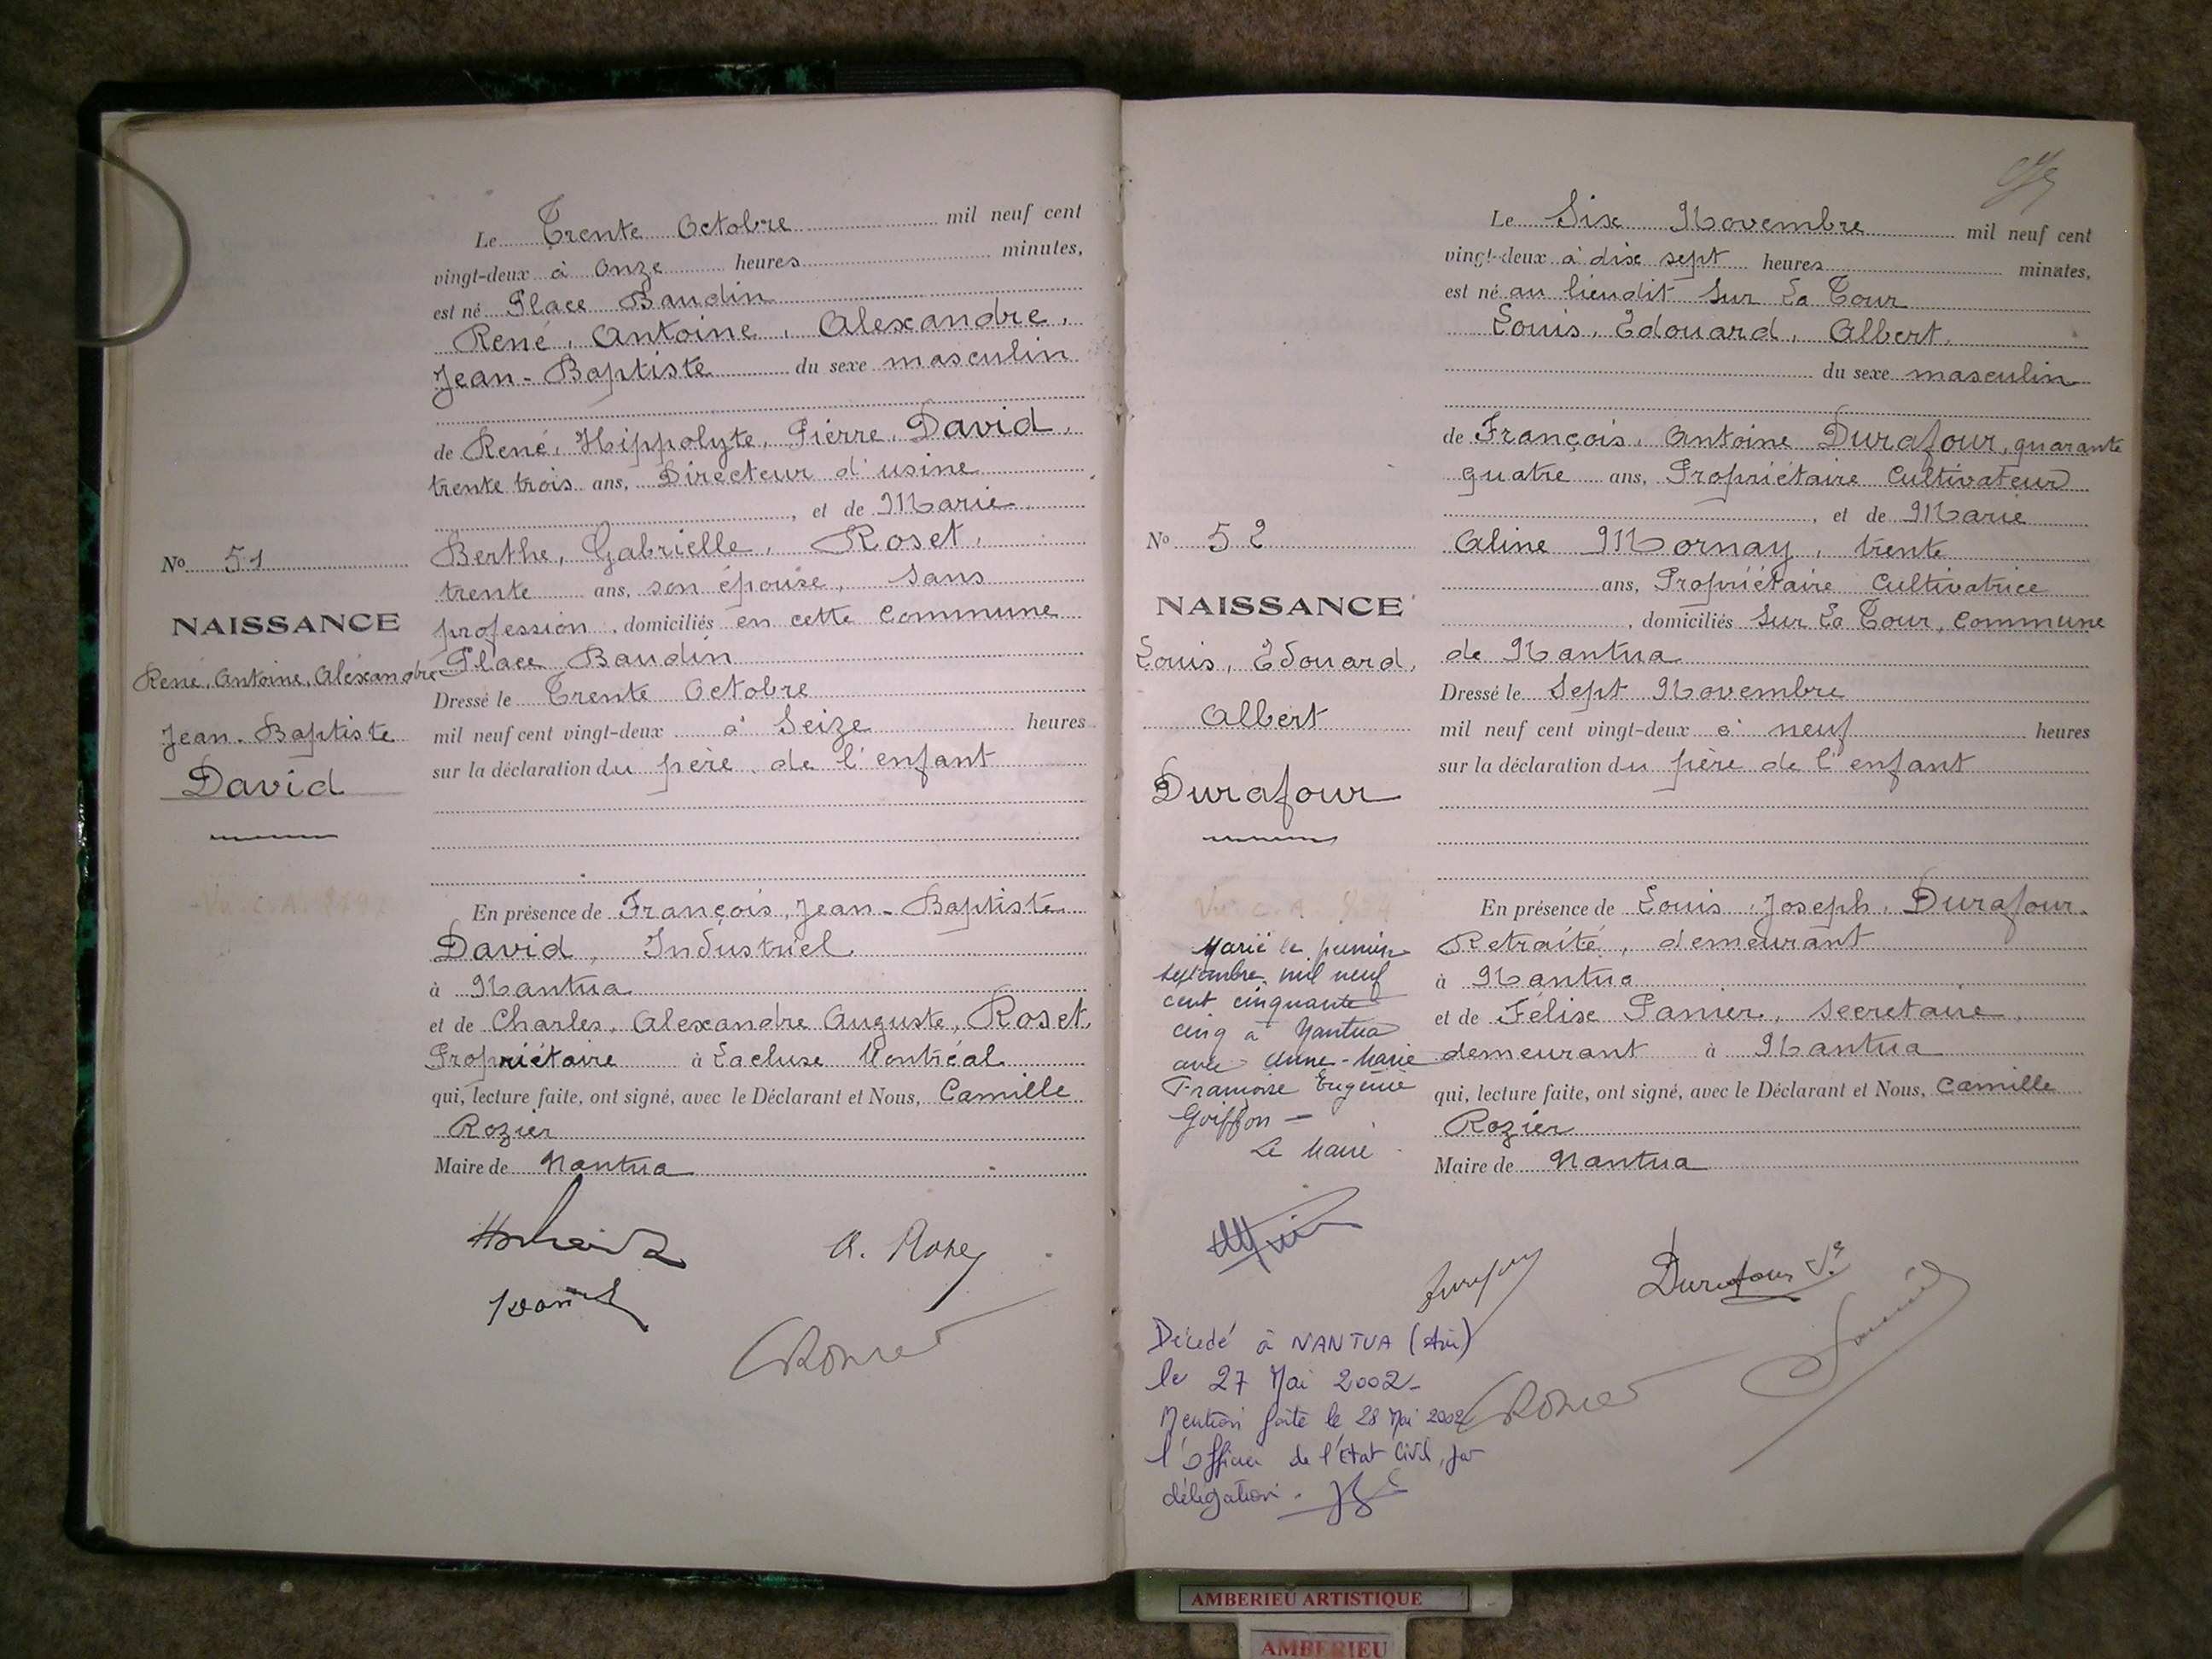 Le Trente Octobre mil neuf cent
vingt-deux à onze heures minutes,
est né Place Baudin
René, Antoine, Alexandre,
Jean-Baptiste du sexe masculin
de René, Hippolyte, Pierre, David,
trente trois ans, Directeur d'usine
, et de Marie
Berthe, Gabrielle, Roset,
trente ans, son épouse, sans
profession, domiciliés en cette commune
Place Baudin
Dressé le Trente Octobre
mil neuf cent vingt-deux à Seize heures
sur la déclaration du père de l'enfant
En présence de François, Jean-Baptiste
David, Industriel
à Nantua
et de Charles, Alexandre Auguste, Roset,
Propriétaire à Lacluse Montréal
qui, lecture faite, ont signé, avec le Déclarant et Nous, Camille
Rozier
Maire de Nantua
No 51
NAISSANCE
René, Antoine, Alexandre
Jean-Baptiste
David
Le Six Novembre mil neuf cent
vingt-deux à dix sept heures minutes,
est né au lieudit Sur La Tour
Louis, Edouard, Albert,
du sexe masculin
de François, Antoine Durafour, quarante
quatre ans, Propriétaire Cultivateur
, et de Marie
Aline Mornay, trente
ans, Propriétaire Cultivatrice
, domiciliés Sur La Tour, Commune
de Nantua
Dressé le Sept Novembre
mil neuf cent vingt-deux à neuf heures
sur la déclaration du père de l'enfant
En présence de Louis, Joseph, Durafour,
Retraité, demeurant
à Nantua
et de Félix Panier, secretaire,
demeurant à Nantua
qui, lecture faite, ont signé, avec le Déclarant et Nous, Camille
Rozier
Maire de Nantua
No 52
NAISSANCE
Louis, Edouard,
Albert
Durafour
Marié le premier
septembre mil neuf
cent cinquante
cinq à Nantua
avec Anne-Marie
Françoise Eugénie
Goiffon -
Le Maire
Durafour
Décédé à NANTUA (Ain)
le 27 Mai 2002-
Mention faite le 28 Mai 2002
l'officier de l'Etat Civil, par
délégation.
AMBERIEU ARTISTIQUE
AMBERIEU